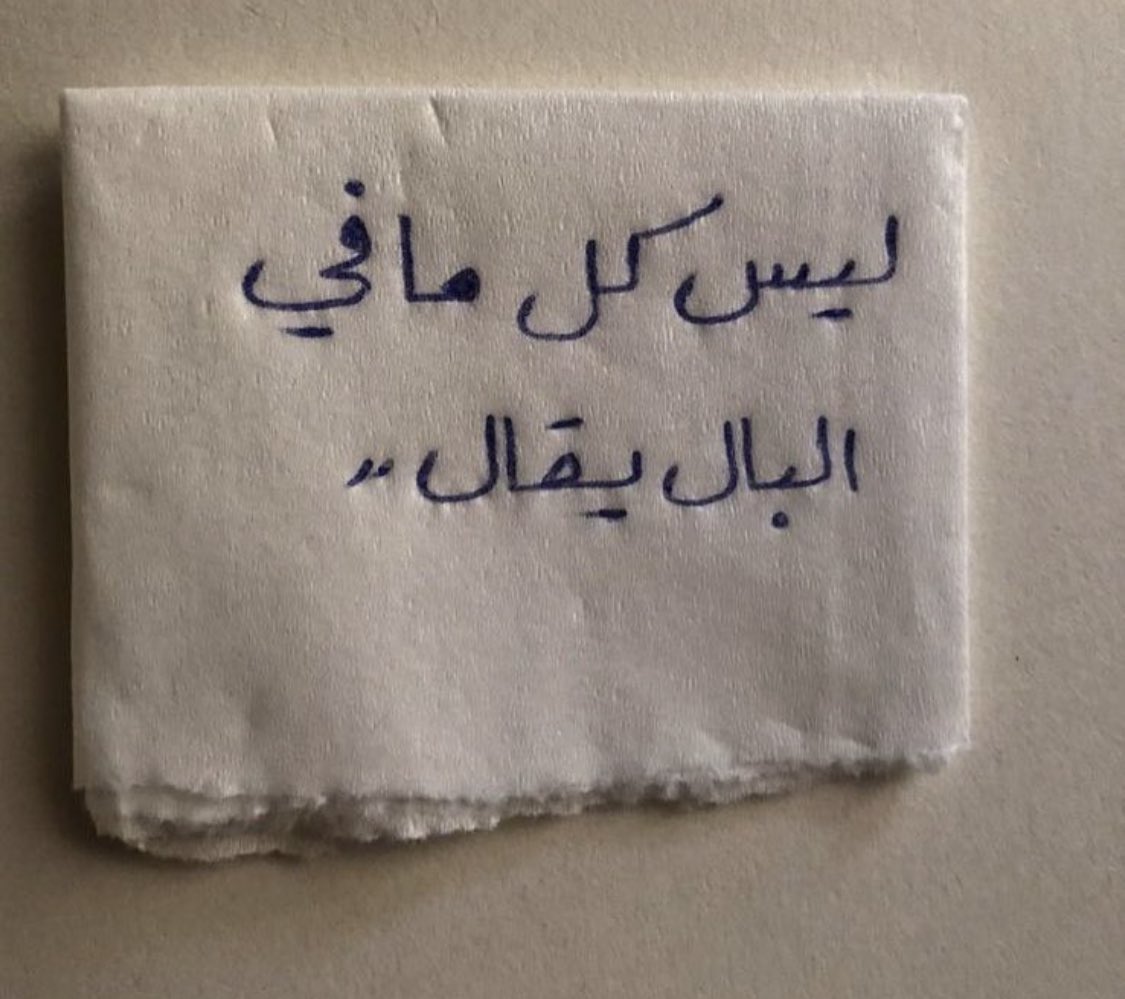 ليس كل ما في
البال يقال ،،